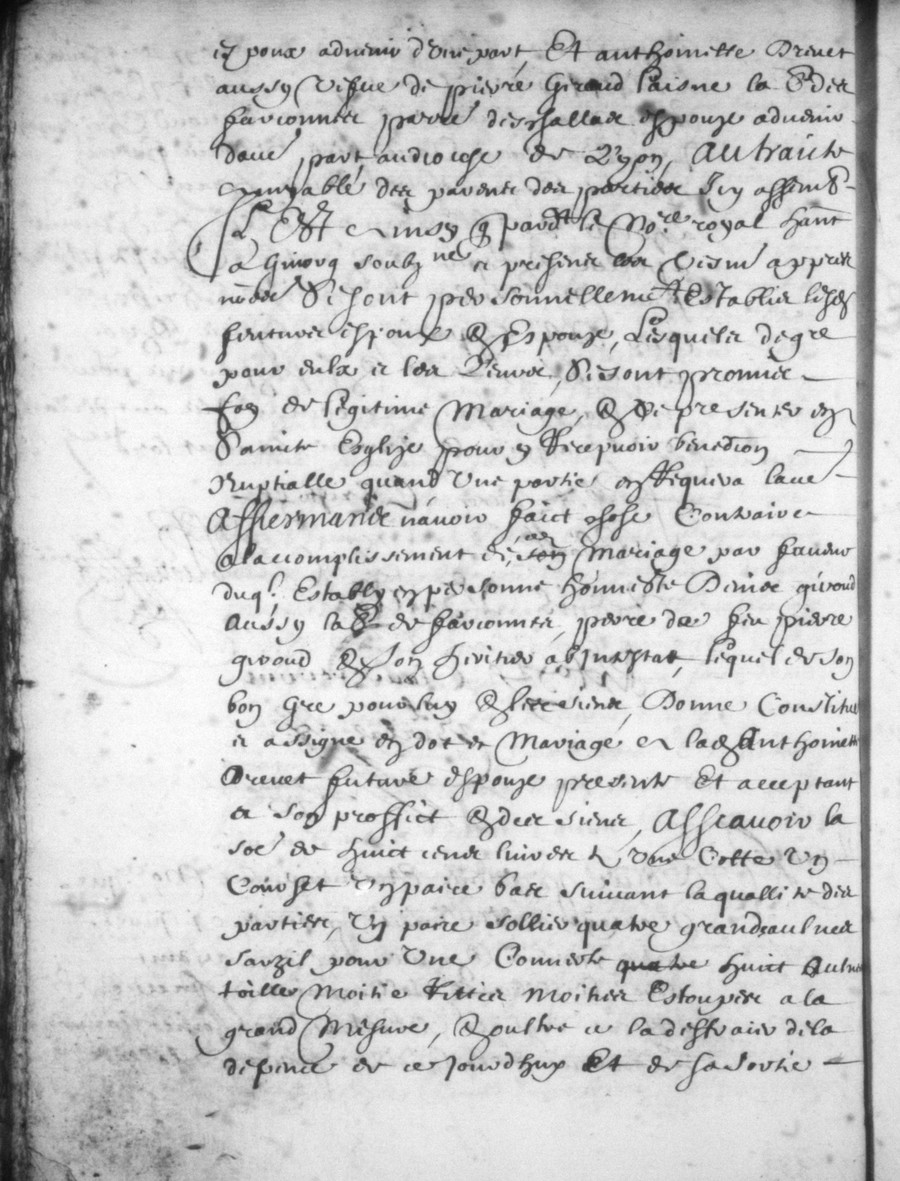 et poux advenir d'une part, Et anthoinette Drevet
aussy vefue de pierre Giroud laisne la P der
farconnier parre deschallas espouze advenir
daue part, audiouse de Lyon, Au traicte
amyable des parens des parties Icy assemb
Est ainsy q pardt le No.re royal hant
a Giuorg soubz ne et presens les tesm appres
nōes Se sont personnellemt Establis lesd
fenturs espoux & Espouze, Lesquels de gre
pour eulx et les Leurs, Se sont promis
foy de legitime Mariage, & se presenter en
Saincte Esglize pour y Recepuoir benedion
Nuptialle quand Une partie en Requera laue
Affiermande n'avoir faict chose Contraire
a laccomplissement de son Mariage par faueur
duql Estably en personne honneste Denis giroud
Aussy la de farconnet, pere de feu pierre
giroud & son heritier abIntestat, lequel de son
bon Gre pour luy & les siens, Donne Constitue
et assigne en dot et Mariage a lad Anthoinette
Drevet future espouze presente Et acceptant
a son proffict & des siens, Asscauoir la
soe de huict cens liures & Une Cotte Un
Corset Un paire bas suivant la quallite des
parties, Un paire sollier quatre grandz aulnes
sarzil pour Une Couuerte quatre huict Aulnes
toille Moitie Rittes moities Estouppes a la
grand Mesure, & oultre a la deffraier de la
despence de ce Jourdhuy Et de sa sortie